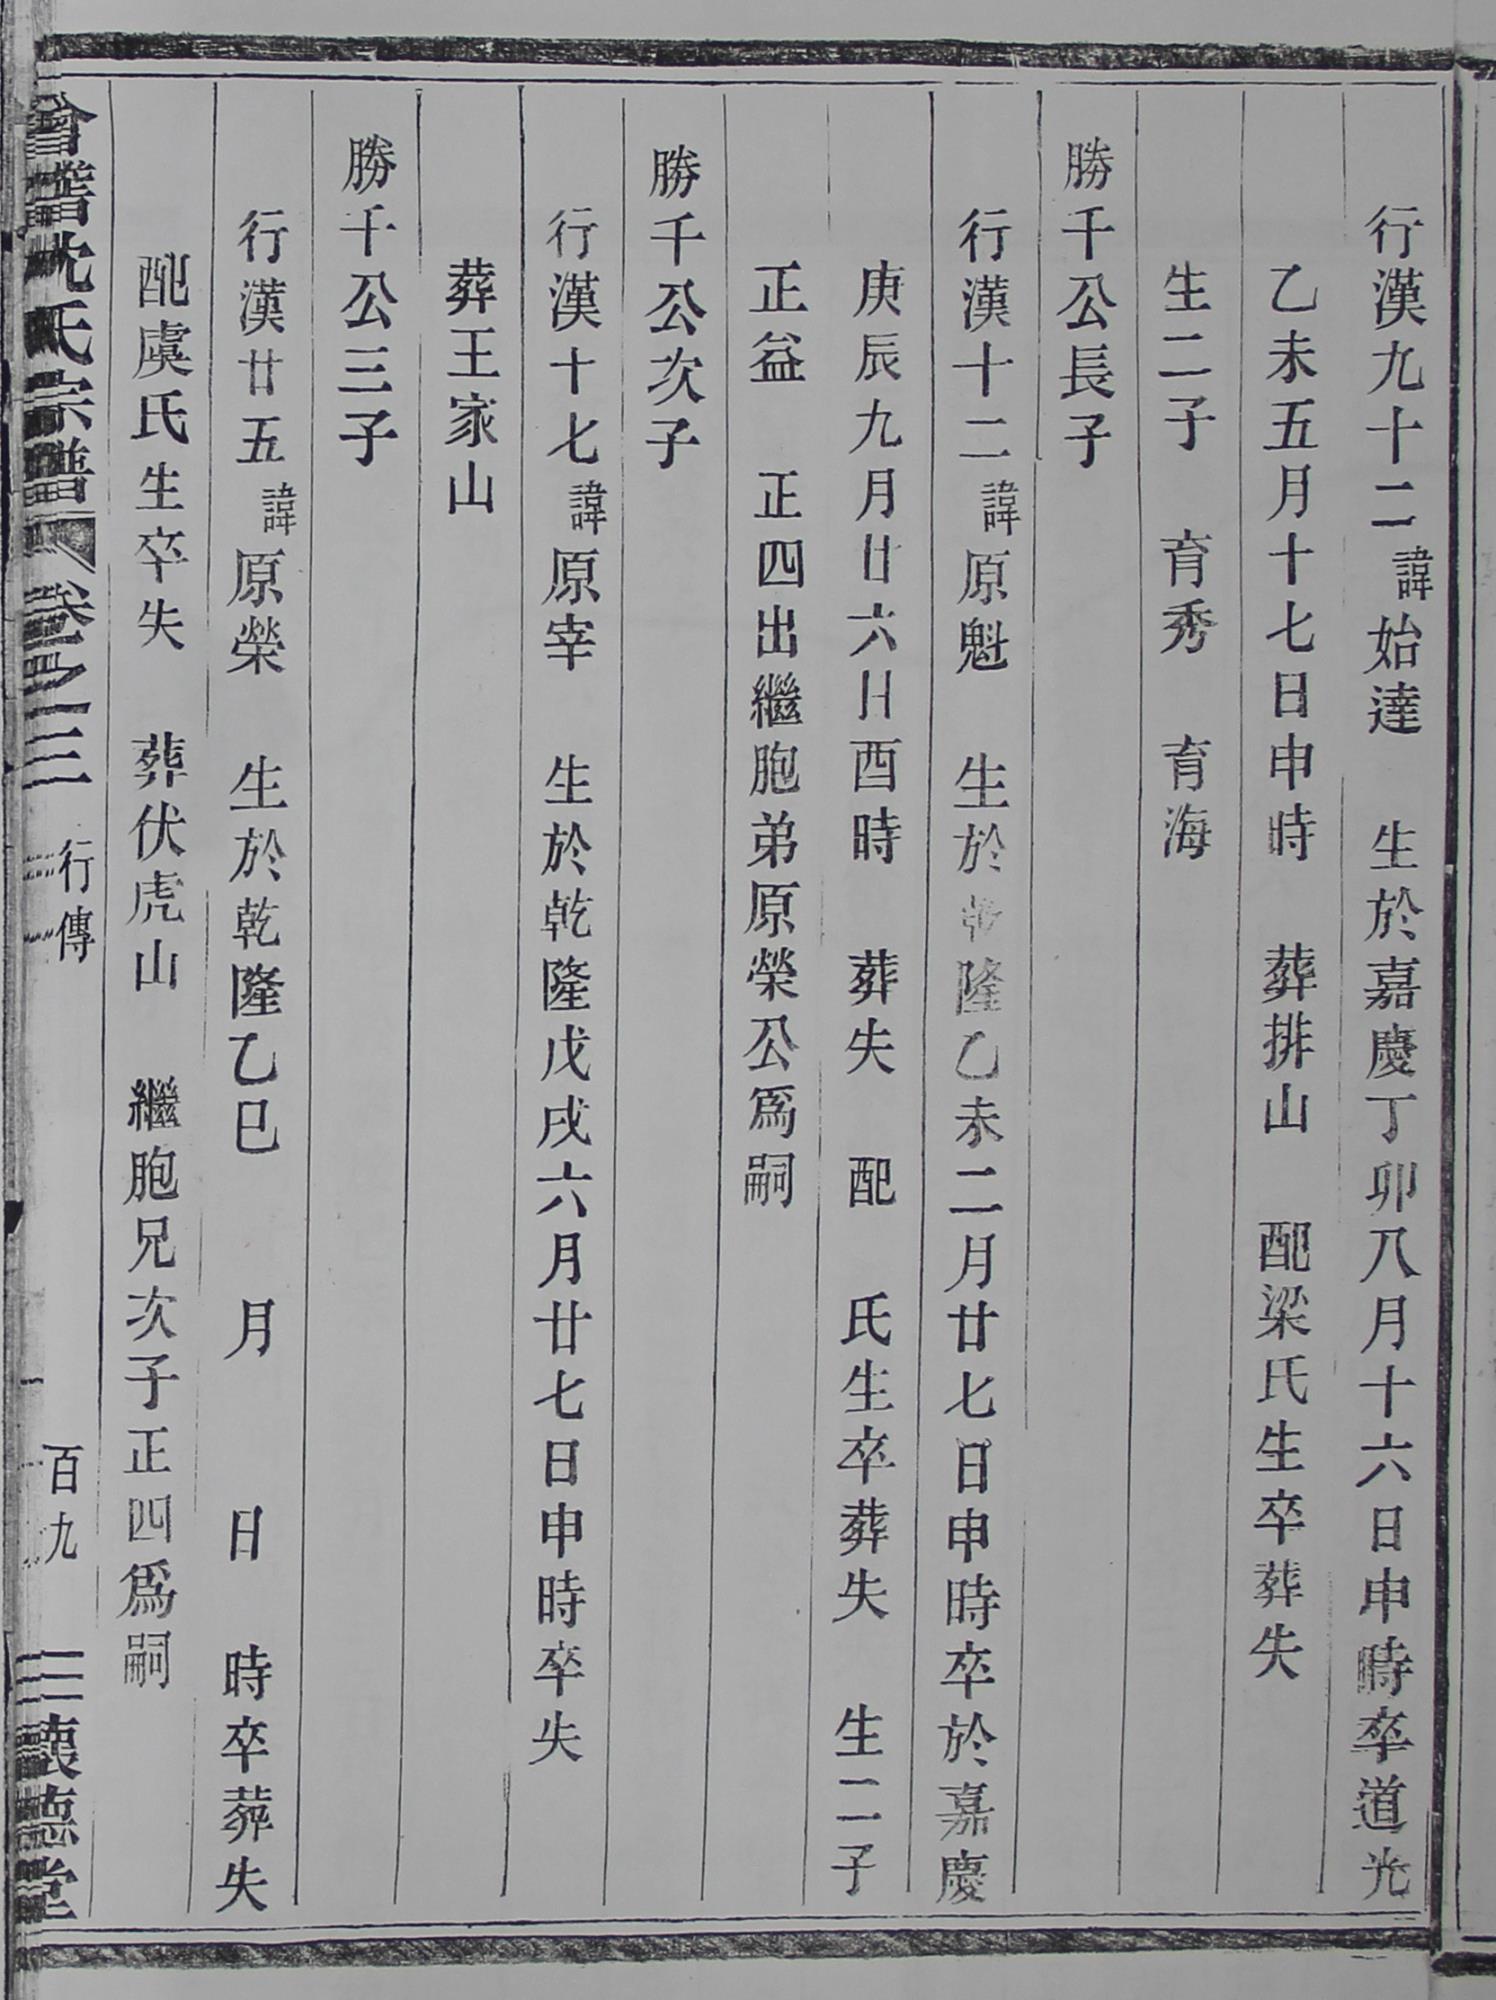 行漢九十二諱始達 生於嘉慶丁卯八月十六日申時卒道光
乙未五月十七日申時 葬排山 配梁氏生卒葬失
生二子 育秀 育海
勝千公長子
行漢十二諱原魁 生於乾隆乙未二月廿七日申時卒於嘉慶
庚辰九月廿六日酉時 葬失 配 氏生卒葬失 生二子
正益 正四出繼胞弟原榮公爲嗣
勝千公次子
行漢十七諱原宰 生於乾隆戊戌六月廿七日申時卒失
葬王家山
勝千公三子
行漢廿五諱原榮 生於乾隆乙巳 月 日 時卒葬失
配虞氏生卒失 葬伏虎山 繼胞兄次子正四爲嗣
會稽沈氏宗譜 卷之三 行傳 百九 懷德堂